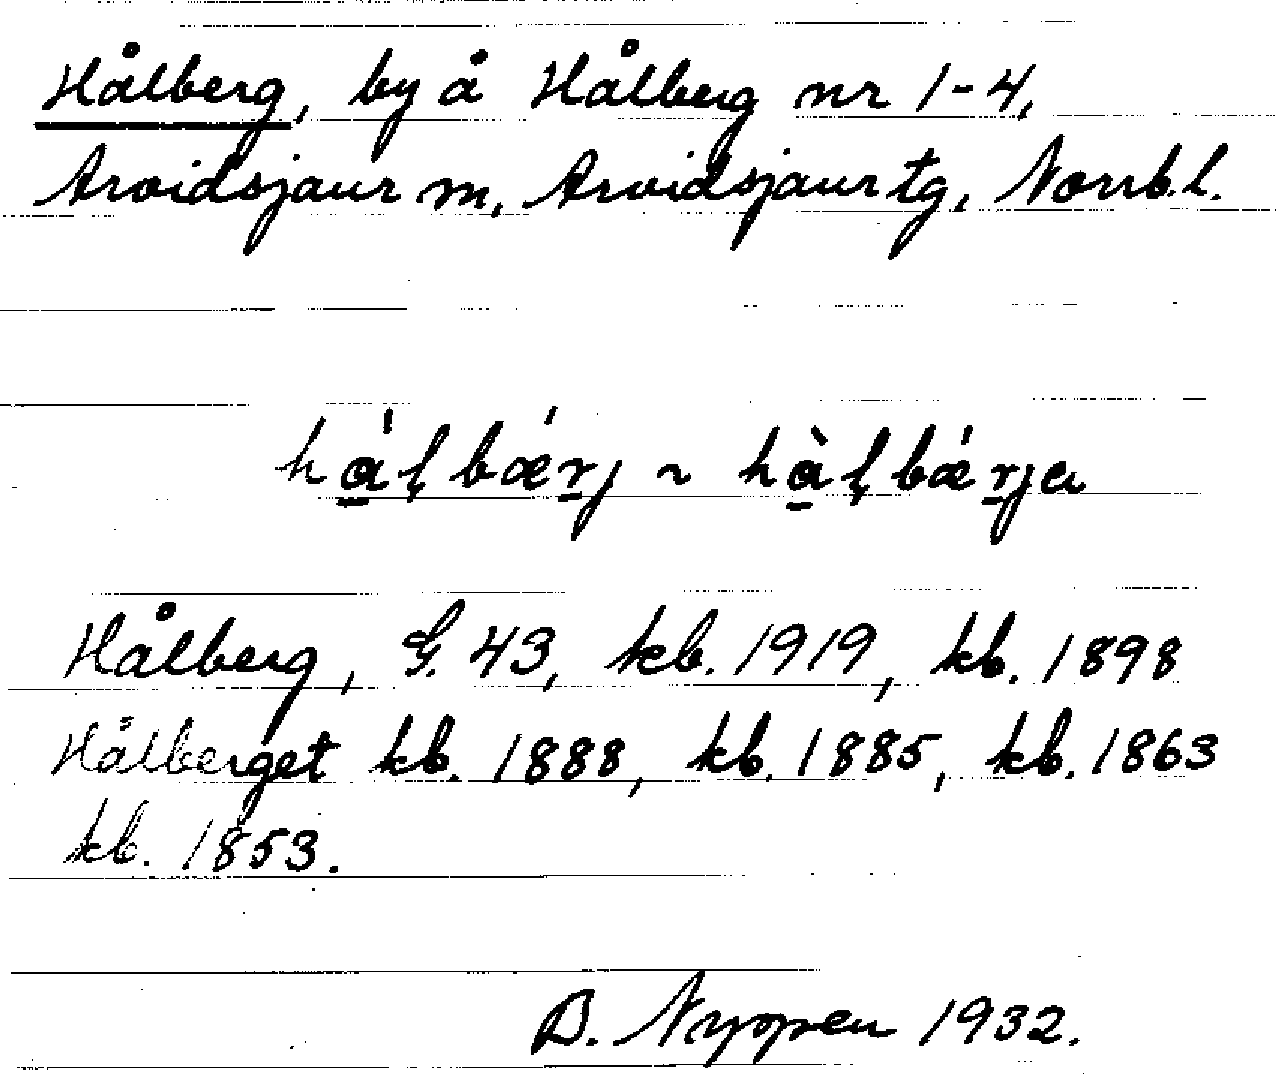 Hålberg, by å Hålberg nr 1-4,
Arvidsjaur m, Arvidsjaur tg, Norrb. l.
hálbǽrj ~ hàlbǽrja
Hålberg, G. 43, kb. 1919, kb. 1898
Hålberget kb. 1888, kb. 1885, kb. 1863
kb. 1853.
B. Nyopen 1932.